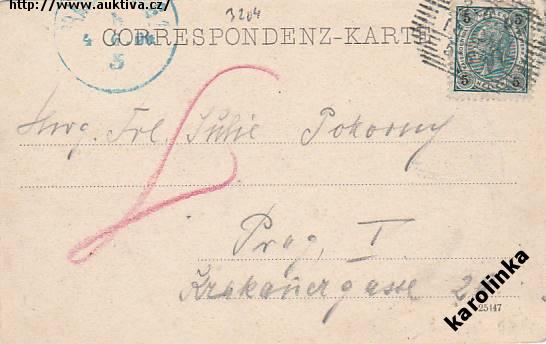 http://www.auktiva.cz/
3204
CORRESPONDENZ-KARTE
5 5
5 5
4
5
Frl. Julie Pokorny
Prag, I
Krakauergasse 2
25147
karolinka